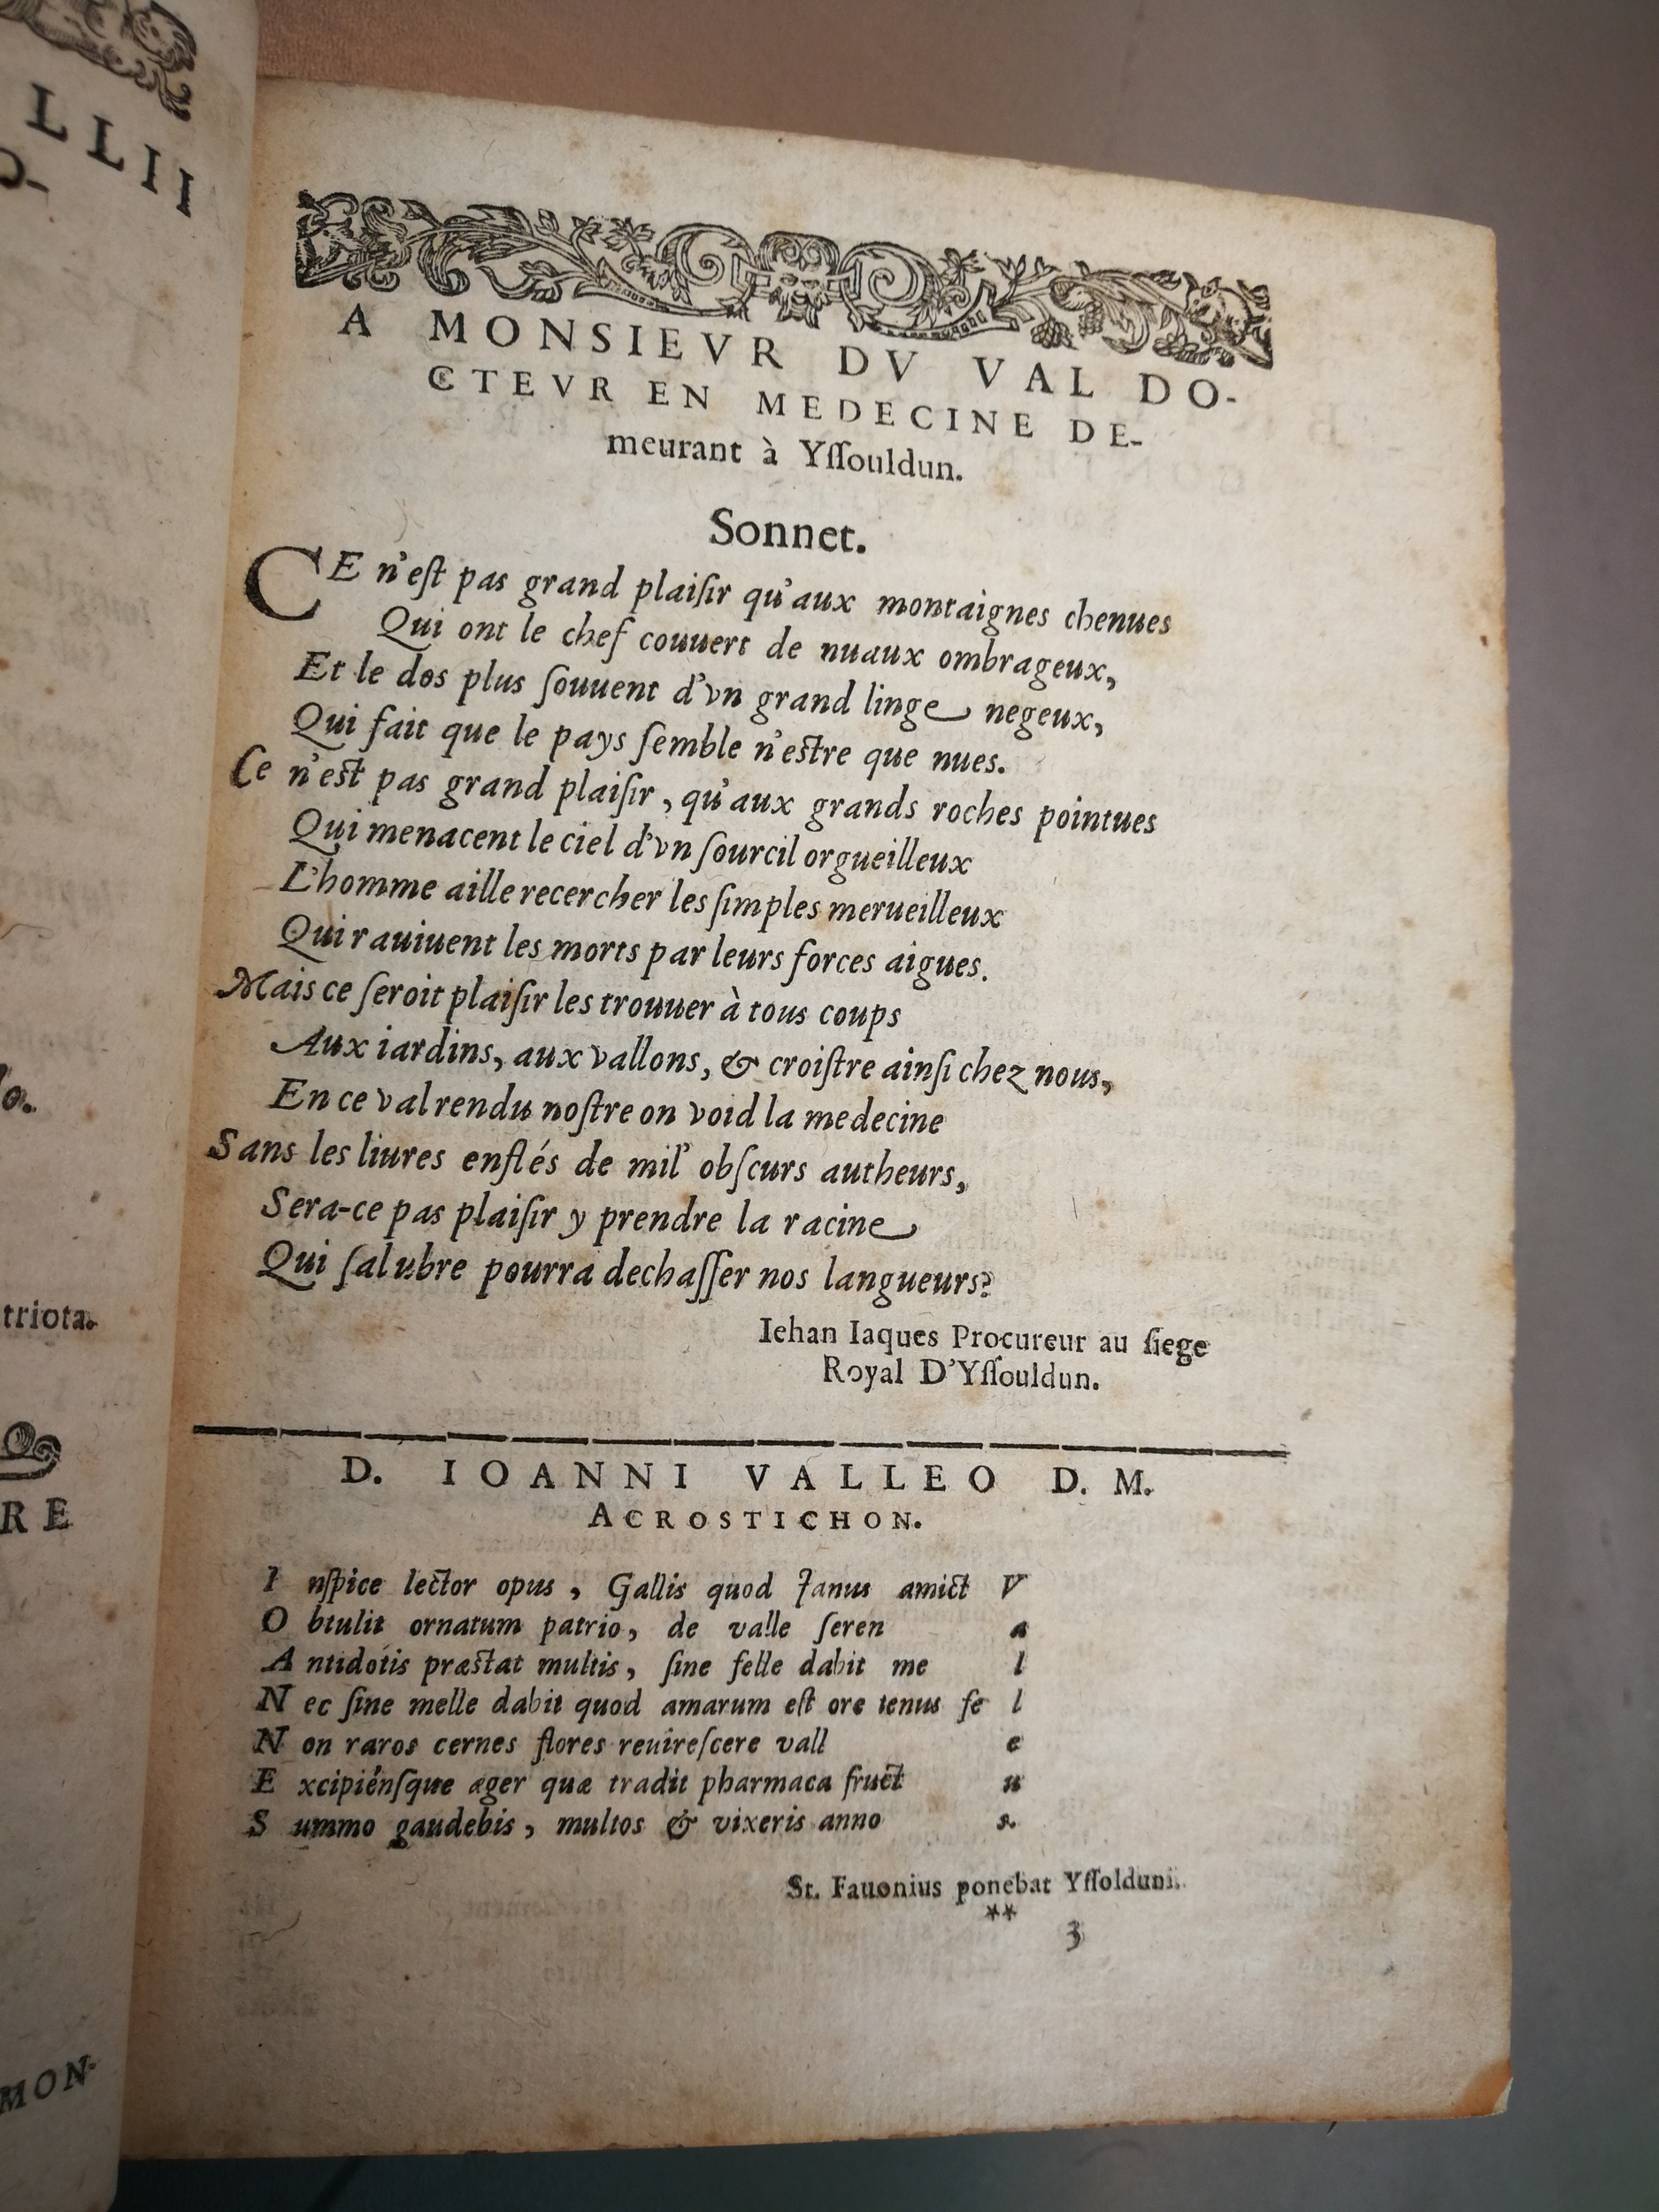 LLII
lo.
triota.
RE
MON-
A MONSIEVR DV VAL DO-
CTEVR EN MEDECINE DE-
meurant à Yſſouldun.
Sonnet.
CE n'eſt pas grand plaiſir qu'aux montaignes chenues
Qui ont le chef couuert de nuaux ombrageux,
Et le dos plus ſouuent d'vn grand linge negeux,
Qui fait que le pays ſemble n'eſtre que nues.
Ce n'eſt pas grand plaiſir, qu'aux grands roches pointues
Qui menacent le ciel d'vn ſourcil orgueilleux
L'homme aille recercher les ſimples merueilleux
Qui rauiuent les morts par leurs forces aigues.
Mais ce ſeroit plaiſir les trouuer à tous coups
Aux iardins, aux vallons, & croiſtre ainſi chez nous,
En ce val rendu noſtre on void la medecine
Sans les liures enflés de mil' obſcurs autheurs,
Sera-ce pas plaiſir y prendre la racine
Qui ſalubre pourra dechaſſer nos langueurs?
Iehan Iaques Procureur au ſiege
Royal D'Yſſouldun.
D. IOANNI VALLEO D. M.
ACROSTICHON.
I nſpice lector opus, Gallis quod Janus amict V
O btulit ornatum patrio, de valle ſeren a
A ntidotis præſtat multis, ſine felle dabit me l
N ec ſine melle dabit quod amarum eſt ore tenus fe l
N on raros cernes flores reuireſcere vall e
E xcipiénſque æger quæ tradit pharmaca fruct u
S ummo gaudebis, multos & vixeris anno s.
St. Fauonius ponebat Yſſolduni.
** 3